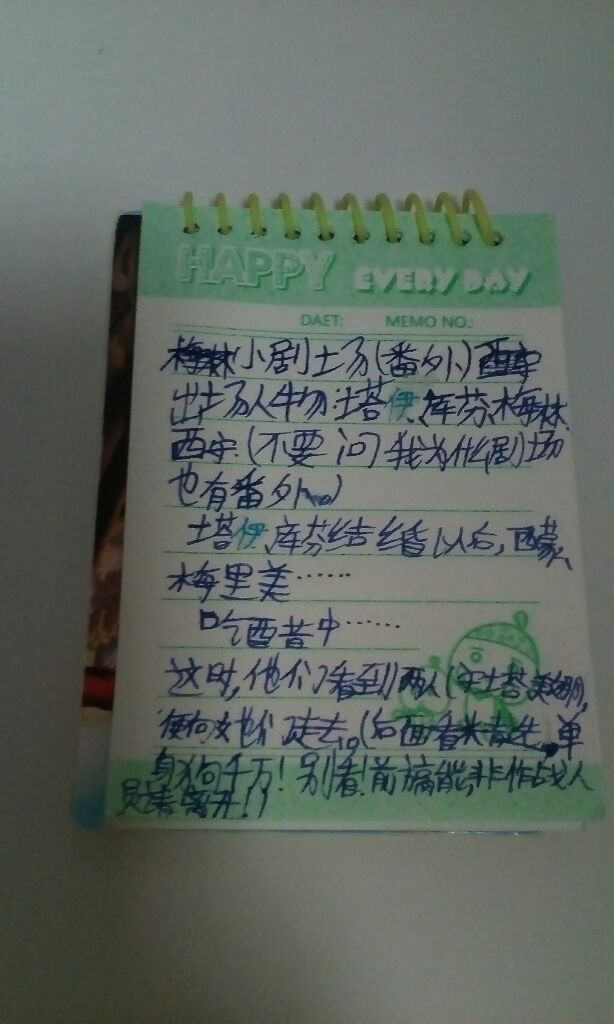 HAPPY EVERY DAY
DAET: MEMO NO.:
小剧场(番外)
出场人物:塔伊、库芬、梅林、
西宁.(不要问我为什么剧场
也有番外。。)
塔伊、库芬结婚以后,西蒙、
梅里美……
吃西昔中……
这时,他们看到两人(实塔美娜,
便向他们走去。(后面看类青先,单
身狗千万!别看!前搞能,非作战人
员请离开!)